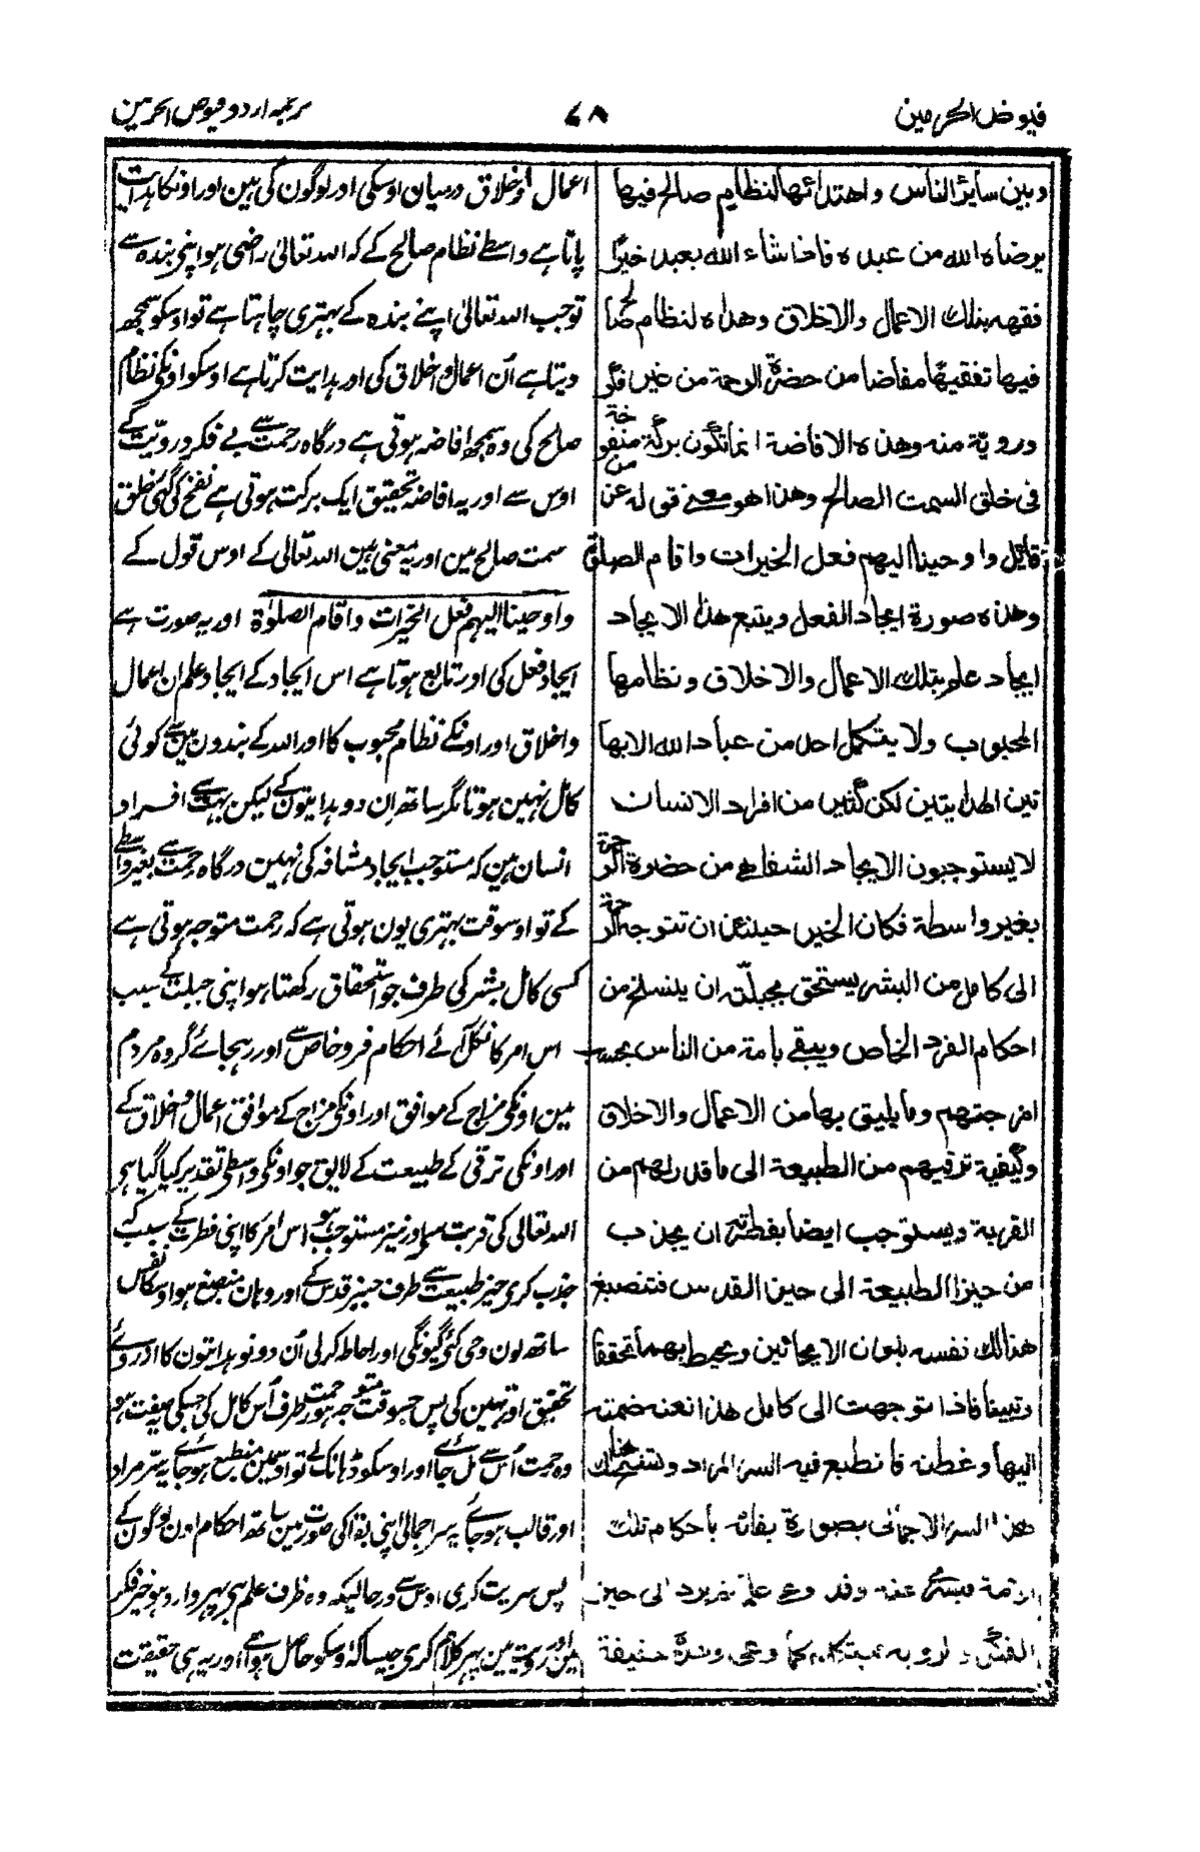 فیوض الحرمین
۷۸
ترجمہ اردو فیوض الحرمین
وبین سایر الناس واهتدائها لنظام صالح فیها
یرضاه الله من عبده فاذا شاء الله بعبد خیرًا
فقهه بتلك الاعمال والاخلاق وهداه لنظام
فیها تفقیهًا مفاضا من حضرة الرحمة من غیر فکر
ورویّة منه وهذه الافاضة انما تکون برکة منفوخة
فی خلق السمت الصالح وهذا هو معنے قوله عن
من قائل واوحینا الیهم فعل الخیرات واقام الصلوة
وهذه صورة ایجاد الفعل ویتبع هذا الایجاد
ایجاد علم بتلك الاعمال والاخلاق ونظامها
المحبوب ولا یتکمل احد من عباد الله الا بها
تین الهدایتین لکن کثیر من افراد الانسان
لا یستوجبون الایجاد الشفاهے من حضرة الرحمة
بغیر واسطة فکان الخیر حینئذ ان تتوجه الرحمة
الی کامل من البشر یستحق بجبلّته ان ینسلخ من
احکام الفرد الخاص ویبقے بامة من الناس بحسب
امزجتهم وما یلیق بها من الاعمال والاخلاق
وکیفیة ترقیهم من الطبیعة الی ما قدر لهم من
القربة ویستوجب ایضا بفطرته ان یجذب
من حیز الطبیعة الی حیز القدس فتنصبغ
هنالك نفسه بلون الایحائین ویحیط بهما تحققا
وتبینا فاذا توجهت الی کامل هذا نعته ضمته
الیها وغطته فانطبع فیه السر المراد وتشبح هنالك
هذا السر الاجمالی بصورة بقائه باحکام تلك
الامة فیسری عنه وقد وعی علما ثم یرد الی حیز
الفکر والرویة فیتکلم کما وعی وهذه حقیقة
اعمال و اخلاق درمیان اوسکی اور لوگون کی ہین اور اونکا ہدایت
پاتا ہے واسطے نظام صالح کے کہ اللہ تعالی راضی ہو اپنی بندہ سے
توجب اللہ تعالیٰ اپنے بندہ کے بہتری چاہتا ہے تو اوسکو سمجھ
دیتا ہے اُن اعمال و اخلاق کی اور ہدایت کرتا ہے اوسکو اونکی نظام
صالح کی وہ سمجھ افاضہ ہوتی ہے درگاہ رحمت سے بے فکر و رویّت کے
اوس سے اور یہ افاضہ تحقیق ایک برکت ہوتی ہے نفخ کی گئی خلق
سمت صالح مین اور یہ معنی ہین اللہ تعالی کے اوس قول کے
واوحینا الیہم فعل الخیرات واقام الصلوٰة اور یہ صورت ہے
ایجاد فعل کی اور تابع ہوتا ہے اس ایجاد کے ایجاد علم ان اعمال
واخلاق اور اونکے نظام محبوب کا اور اللہ کے بندون مین سے کوئی
کامل نہین ہوتا مگر ساتھ ان دو ہدایتون کے لیکن بہت سے افراد
انسان ہین کہ مستوجب ایجاد مشافہ کی نہین درگاہ رحمت سے بغیر واسطے
کے تو اوسوقت بہتری یون ہوتی ہے کہ رحمت متوجہ ہوتی ہے
کسی کامل بشر کی طرف جو استحقاق رکھتا ہو اپنی جبلت کے سبب
اس امر کا نکل آئے احکام فرد خاص سے اور رہجائے گروہ مردم
مین اونکی مزاج کے موافق اور اونکی مزاج کے موافق اعمال و اخلاق کے
اور اونکی ترقی کے طبیعت کے لایق جو اونکی واسطی تقدیر کیا گیا ہی
اللہ تعالی کی قربت سے اور نیز مستوجب ہو اس امر کا اپنی فطرت کے سبب کہ
جذب کری حیز طبیعت سے طرف حیز قدس کے اور وہان منصبغ ہو اوسکا نفس
ساتھ لون وحی کئی گیونگی اور احاطہ کرلی اُن دونو ہدایتون کا از روے
تحقیق اور تبین کی پس جسوقت متوجہ ہو رحمت طرف اُس کامل کی جسکی یہ نعت ہو
وہ رحمت اُس سے مل جائے اور اوسکو ڈہانک لے تو اوسمین منطبع ہو جائے یہ سّر مراد
اور قالب ہو جائے یہ سر اجمالی اپنی بقا کی صورت مین ساتھ احکام اون لوگون کے
پس سریت کری اوس سے درحالیکہ وہ ظرف علم ہی پھر وارد ہو حیز فکر
اور رویت مین پہر کلام کری جیسا کہ اوسکو حاصل ہوا ہے اور یہ ہی حقیقت